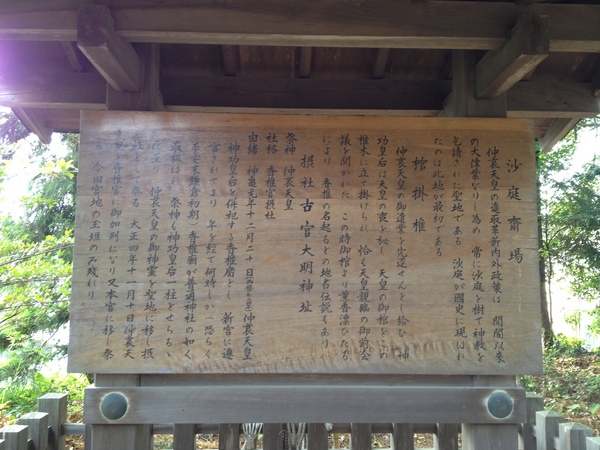 沙庭斎場
仲哀天皇の進取革新内外政策は 開闢以来
の大偉業なりし為め 常に沙庭を樹て神教を
乞請された聖地である 沙庭が國史に現はれ
たのは此地が最初である
棺掛椎
仲哀天皇の御遺業を完遂せんとし給ひし神
功皇后は天皇の喪を秘し 天皇の御棺をこの
椎木に立て掛けられ 恰も天皇親臨の御前会
議を開かれた この時御棺より薫香漂ひたち
しより 香椎の名起るとの地名伝説がある
摂社古宮大明神址
祭神 仲哀天皇
社格 香椎宮摂社
由緒 神亀元年十二月二十日 仲哀天皇
神功皇后を併祀す 香椎廟とし 新宮に遷
宮されしより 年を経て何時しか 恐らく
平安末鎌倉初期 香椎廟が普通神社の如く
祭神も神功皇后一柱とせらるゝ
に至り 仲哀天皇の御神霊を聖地に移し摂
社とし祭る 大正四年十一月十日仲哀天
皇を香椎宮に御加列になり又本宮に移し祭
る 今旧宮地の玉垣の み残れり